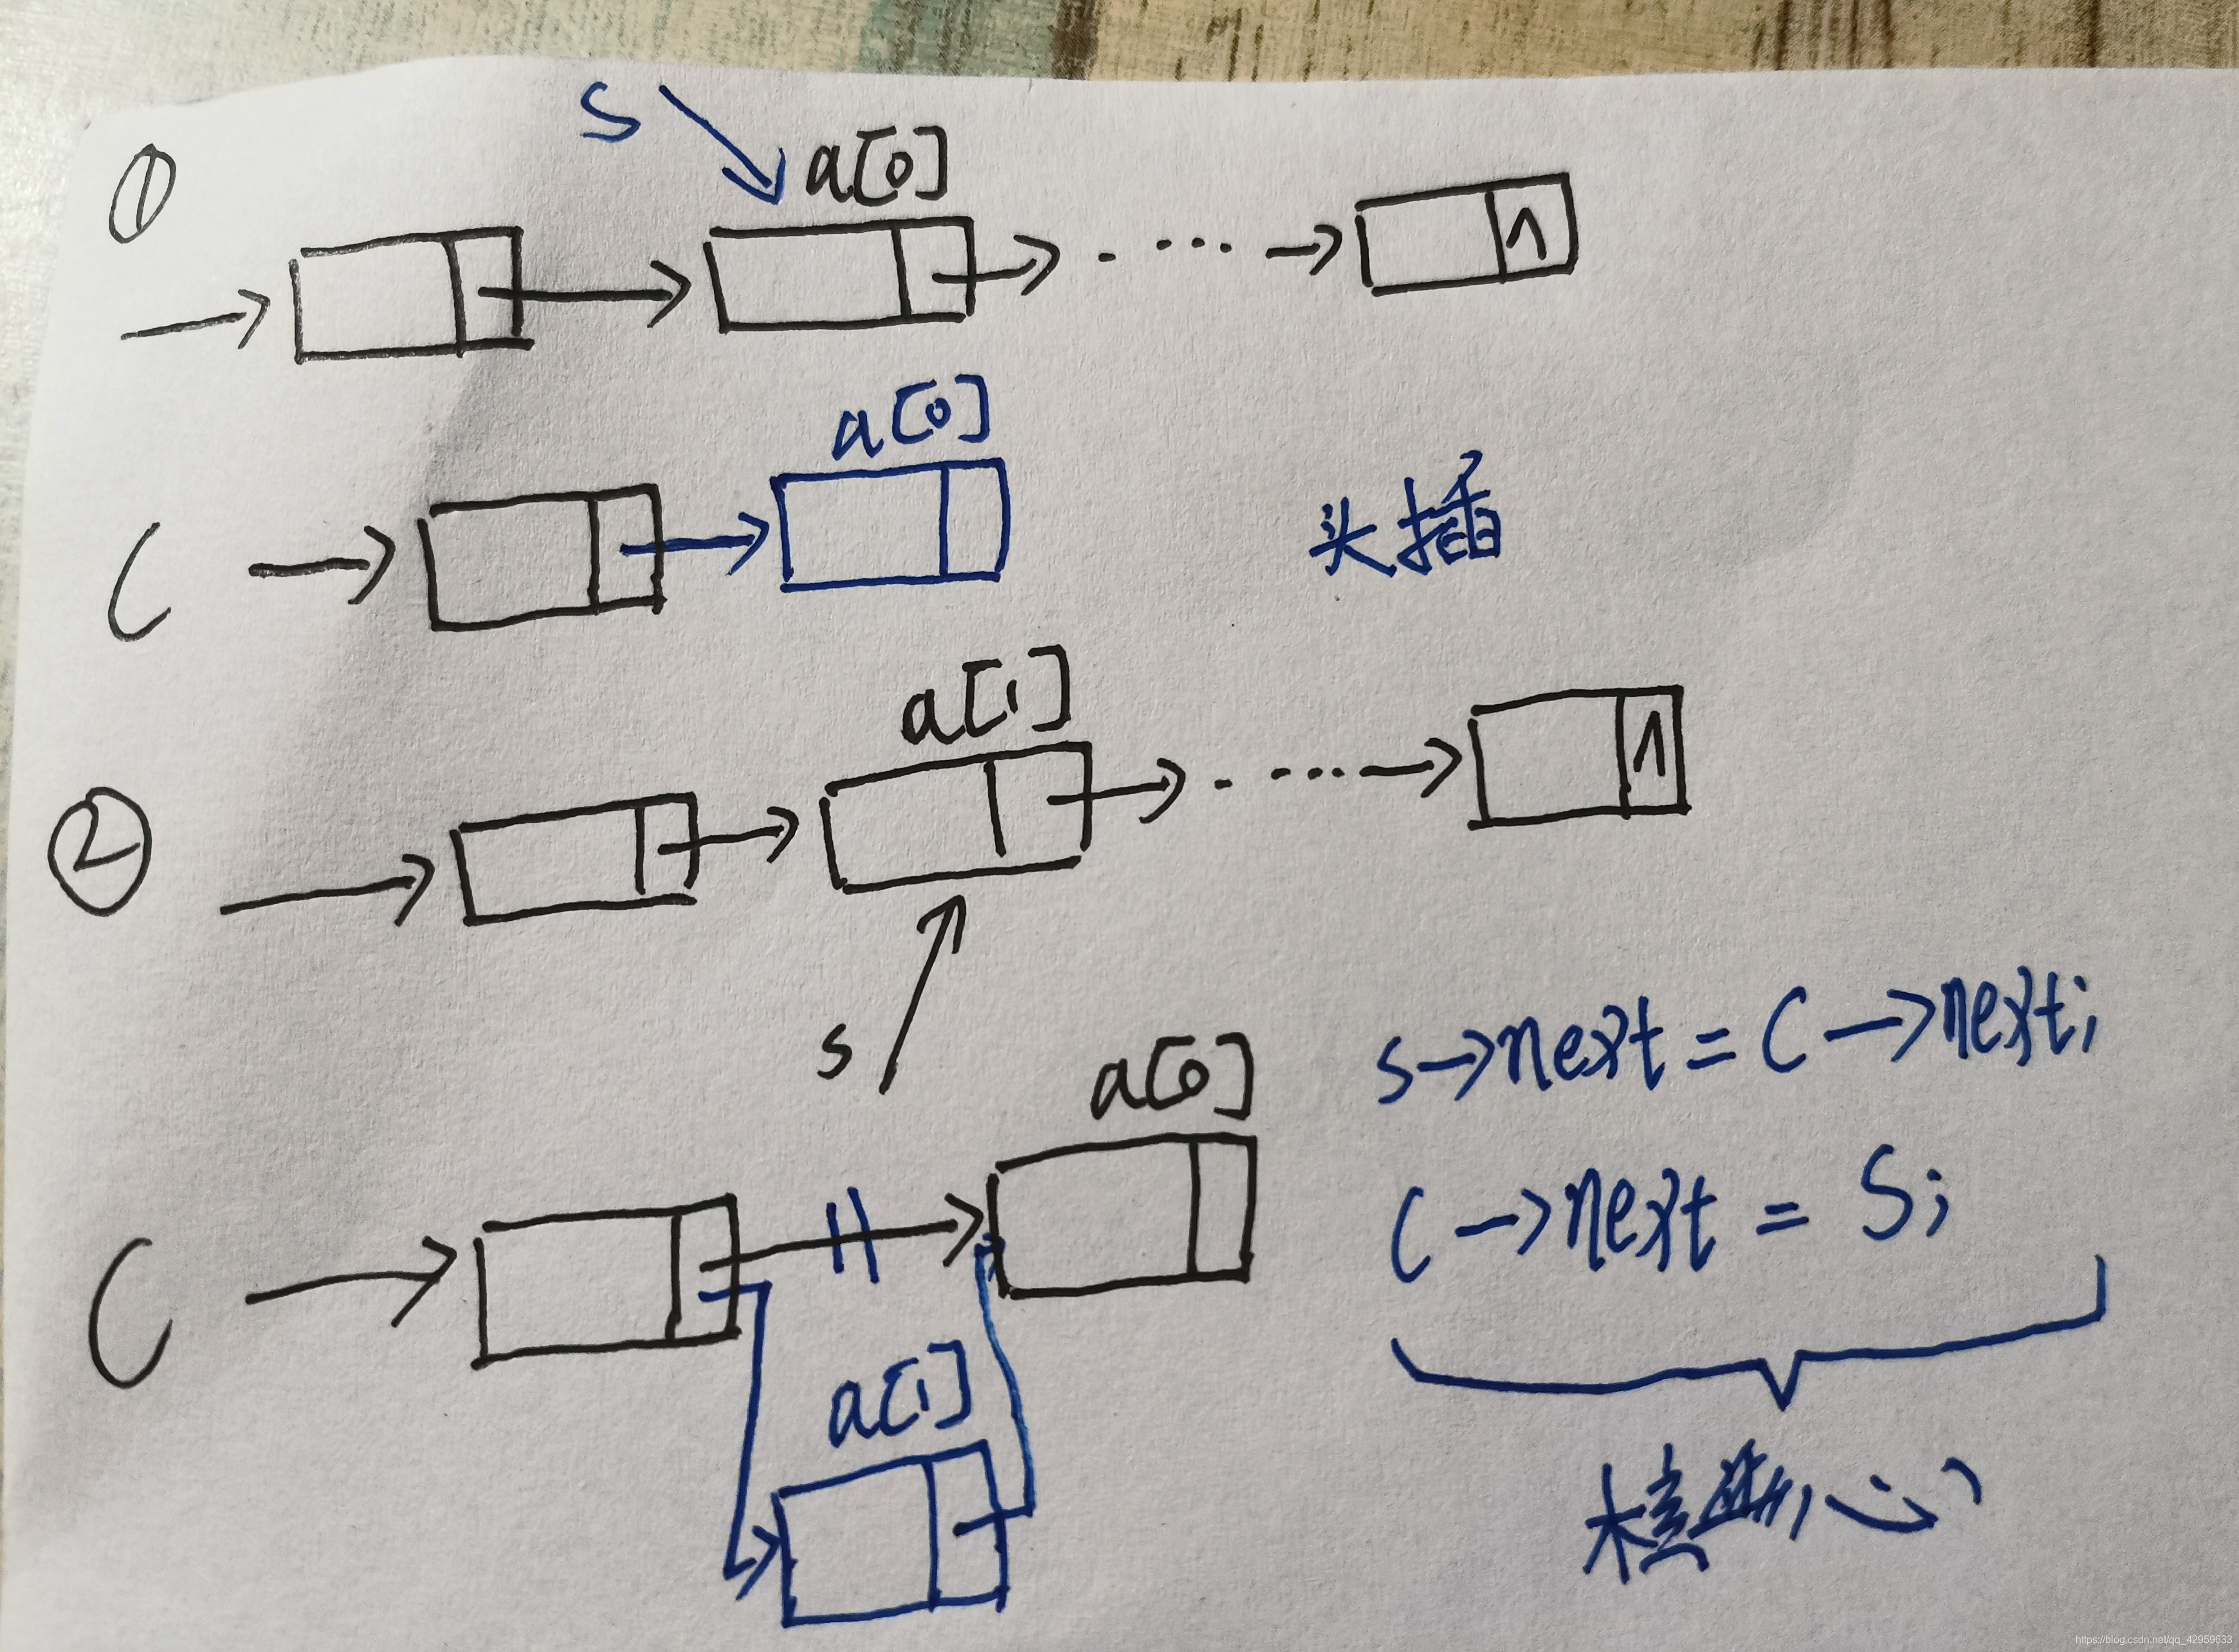 ①
S
a[0]
∧
a[0]
C
头插
②
a[1]
∧
s
s→next = C→next;
a[0]
C→next = S;
C
a[1]
核心
https://blog.csdn.net/qq_42959633